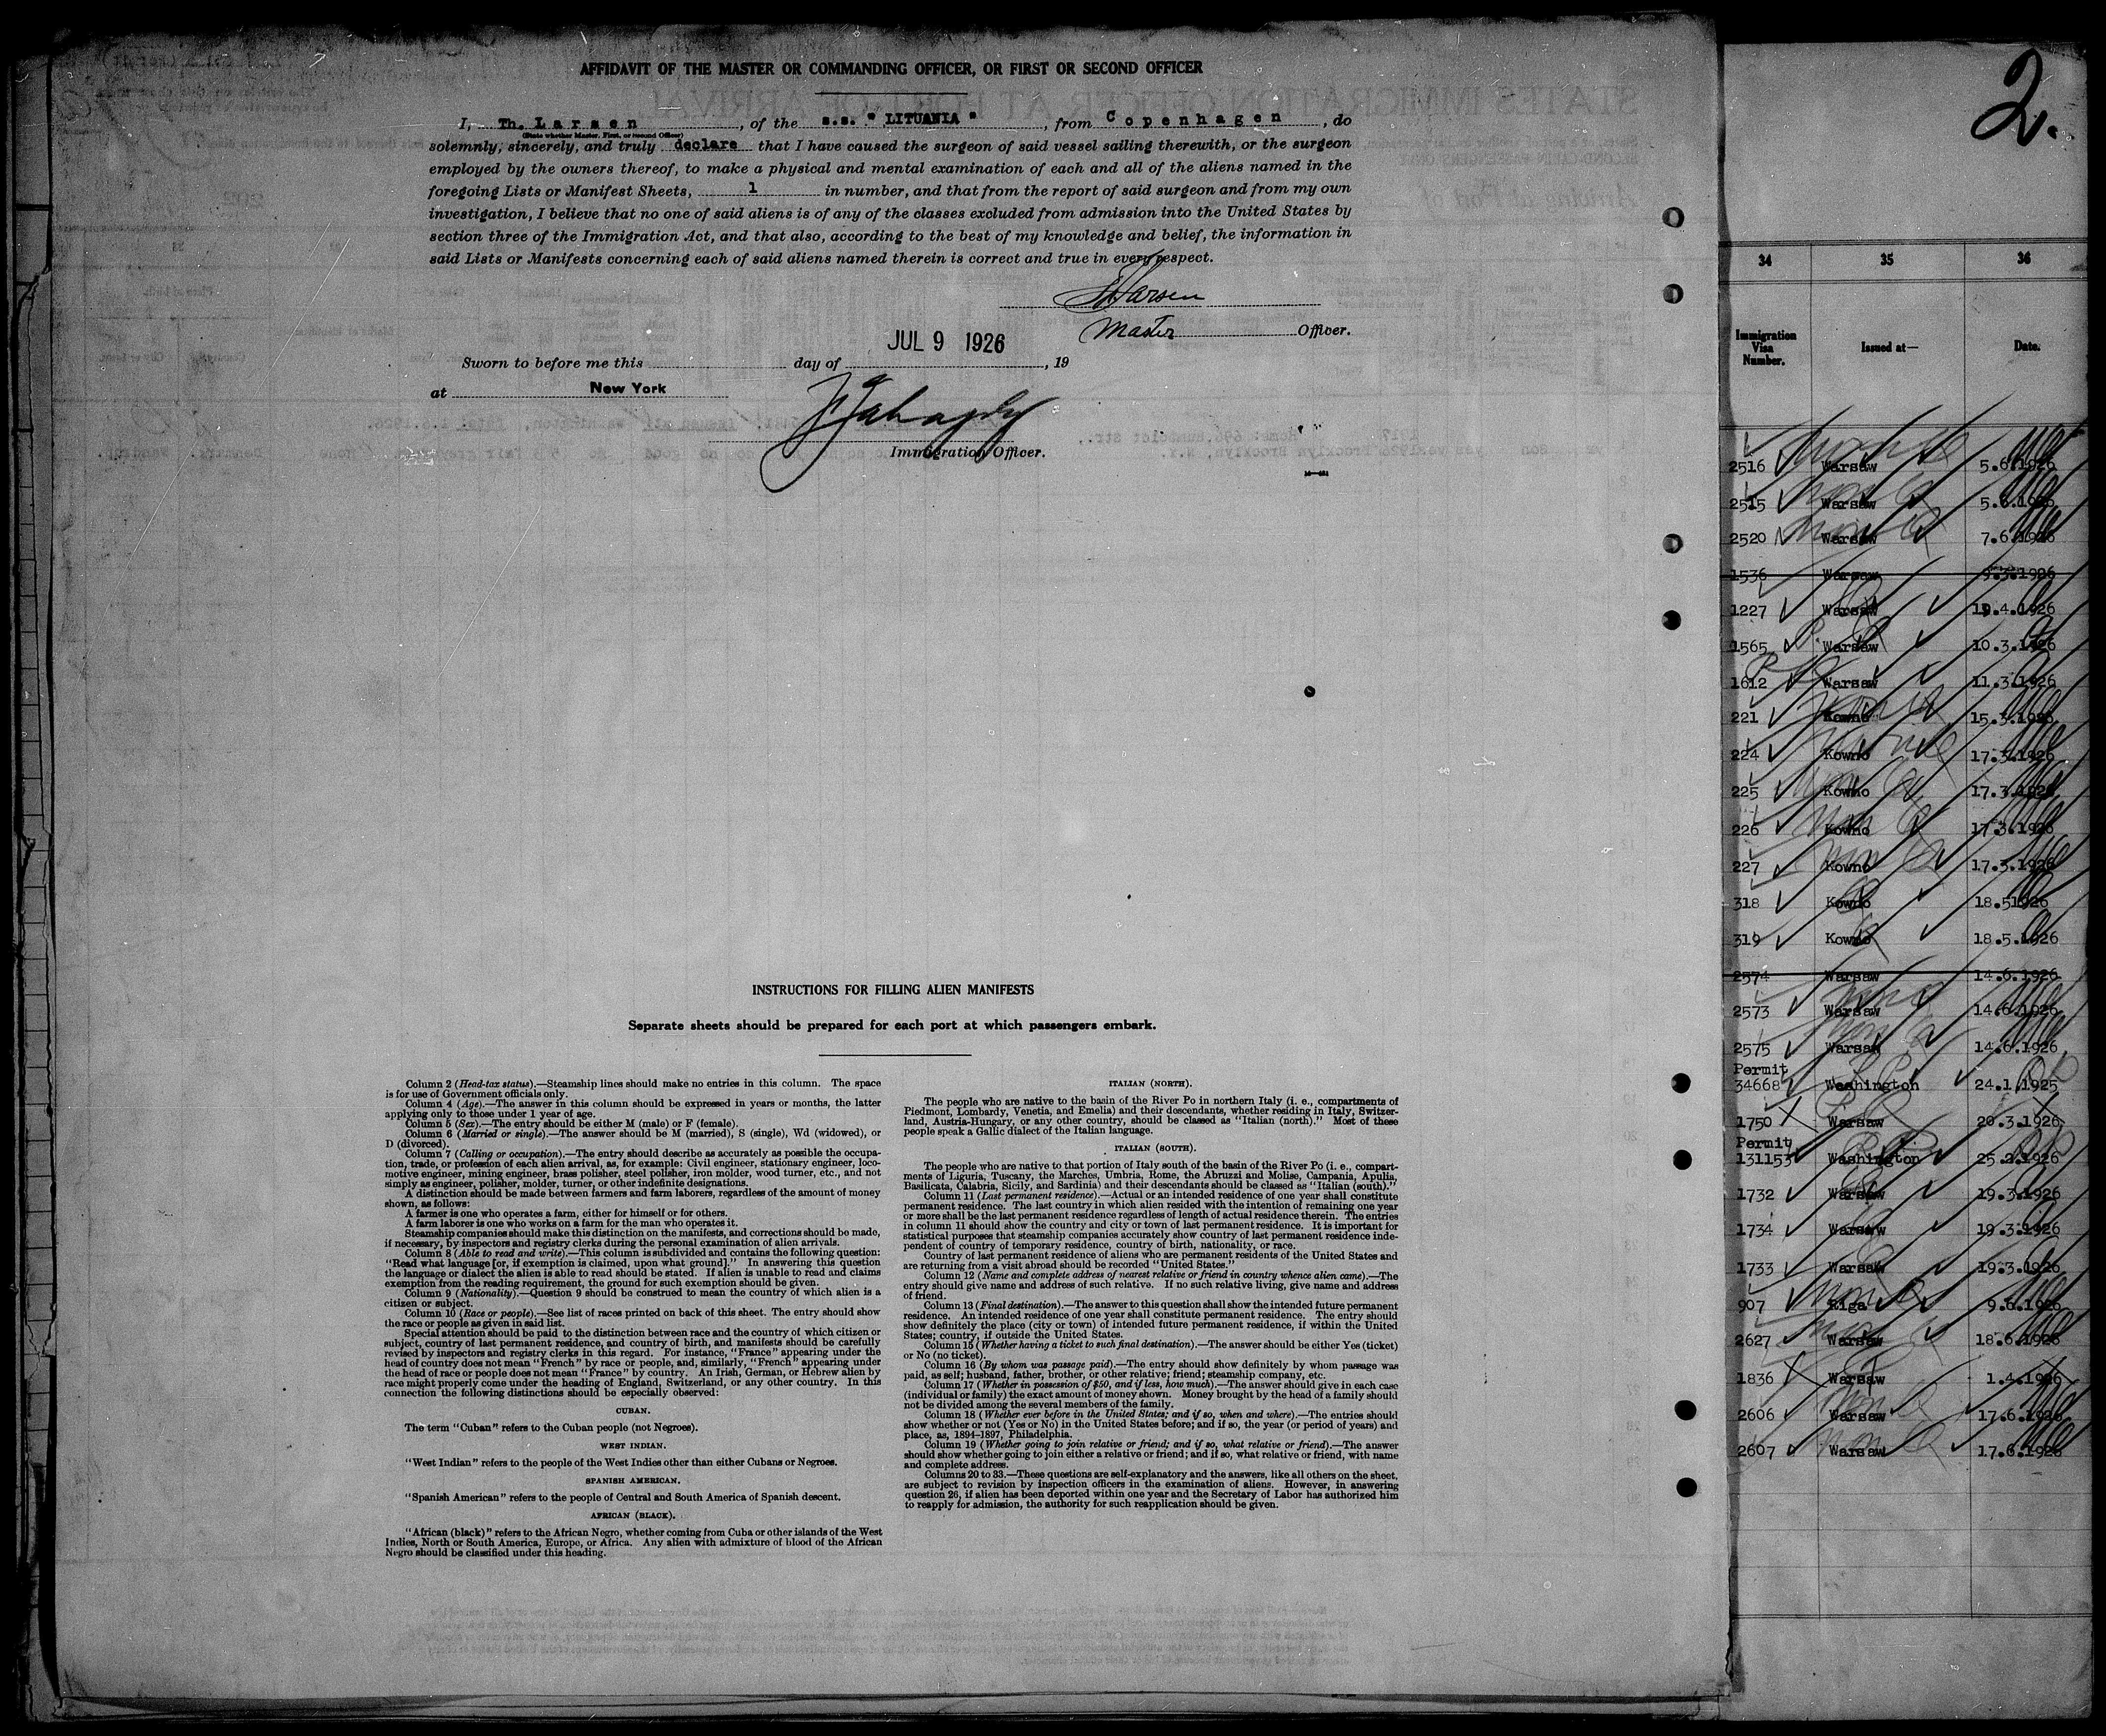 AFFIDAVIT OF THE MASTER OR COMMANDING OFFICER, OR FIRST OR SECOND OFFICER
I, Th. Larsen, of the s.s. "LITUANIA", from Copenhagen, do
(State whether Master, First, or Second Officer)
solemnly, sincerely, and truly declare that I have caused the surgeon of said vessel sailing therewith, or the surgeon
employed by the owners thereof, to make a physical and mental examination of each and all of the aliens named in the
foregoing Lists or Manifest Sheets, 1 in number, and that from the report of said surgeon and from my own
investigation, I believe that no one of said aliens is of any of the classes excluded from admission into the United States by
section three of the Immigration Act, and that also, according to the best of my knowledge and belief, the information in
said Lists or Manifests concerning each of said aliens named therein is correct and true in every respect.
Larsen
Master Officer.
JUL 9 1926
Sworn to before me this day of , 19
at New York
Immigration Officer.
INSTRUCTIONS FOR FILLING ALIEN MANIFESTS
Separate sheets should be prepared for each port at which passengers embark.
Column 2 (Head-tax status).—Steamship lines should make no entries in this column. The space
is for use of Government officials only.
Column 4 (Age).—The answer in this column should be expressed in years or months, the latter
applying only to those under 1 year of age.
Column 5 (Sex).—The entry should be either M (male) or F (female).
Column 6 (Married or single).—The answer should be M (married), S (single), Wd (widowed), or
D (divorced).
Column 7 (Calling or occupation).—The entry should describe as accurately as possible the occupa-
tion, trade, or profession of each alien arrival, as, for example: Civil engineer, stationary engineer, loco-
motive engineer, mining engineer, brass polisher, steel polisher, iron molder, wood turner, etc., and not
simply as engineer, polisher, molder, turner, or other indefinite designations.
A distinction should be made between farmers and farm laborers, regardless of the amount of money
shown, as follows:
A farmer is one who operates a farm, either for himself or for others.
A farm laborer is one who works on a farm for the man who operates it.
Steamship companies should make this distinction on the manifests, and corrections should be made,
if necessary, by inspectors and registry clerks during the personal examination of alien arrivals.
Column 8 (Able to read and write).—This column is subdivided and contains the following question:
"Read what language [or, if exemption is claimed, upon what ground]." In answering this question
the language or dialect the alien is able to read should be stated. If alien is unable to read and claims
exemption from the reading requirement, the ground for such exemption should be given.
Column 9 (Nationality).—Question 9 should be construed to mean the country of which alien is a
citizen or subject.
Column 10 (Race or people).—See list of races printed on back of this sheet. The entry should show
the race or people as given in said list.
Special attention should be paid to the distinction between race and the country of which citizen or
subject, country of last permanent residence, and country of birth, and manifests should be carefully
revised by inspectors and registry clerks in this regard. For instance, "France" appearing under the
head of country does not mean "French" by race or people, and, similarly, "French" appearing under
the head of race or people does not mean "France" by country. An Irish, German, or Hebrew alien by
race might properly come under the heading of England, Switzerland, or any other country. In this
connection the following distinctions should be especially observed:
CUBAN.
The term "Cuban" refers to the Cuban people (not Negroes).
WEST INDIAN.
"West Indian" refers to the people of the West Indies other than either Cubans or Negroes.
SPANISH AMERICAN.
"Spanish American" refers to the people of Central and South America of Spanish descent.
AFRICAN (BLACK).
"African (black)" refers to the African Negro, whether coming from Cuba or other islands of the West
Indies, North or South America, Europe, or Africa. Any alien with admixture of blood of the African
Negro should be classified under this heading.
ITALIAN (NORTH).
The people who are native to the basin of the River Po in northern Italy (i. e., compartments of
Piedmont, Lombardy, Venetia, and Emelia) and their descendants, whether residing in Italy, Switzer-
land, Austria-Hungary, or any other country, should be classed as "Italian (north)." Most of these
people speak a Gallic dialect of the Italian language.
ITALIAN (SOUTH).
The people who are native to that portion of Italy south of the basin of the River Po (i. e., compart-
ments of Liguria, Tuscany, the Marches, Umbria, Rome, the Abruzzi and Molise, Campania, Apulia,
Basilicata, Calabria, Sicily, and Sardinia) and their descendants should be classed as "Italian (south)."
Column 11 (Last permanent residence).—Actual or an intended residence of one year shall constitute
permanent residence. The last country in which alien resided with the intention of remaining one year
or more shall be the last permanent residence regardless of length of actual residence therein. The entries
in column 11 should show the country and city or town of last permanent residence. It is important for
statistical purposes that steamship companies accurately show country of last permanent residence inde-
pendent of country of temporary residence, country of birth, nationality, or race.
Country of last permanent residence of aliens who are permanent residents of the United States and
are returning from a visit abroad should be recorded "United States."
Column 12 (Name and complete address of nearest relative or friend in country whence alien came).—The
entry should give name and address of such relative. If no such relative living, give name and address
of friend.
Column 13 (Final destination).—The answer to this question shall show the intended future permanent
residence. An intended residence of one year shall constitute permanent residence. The entry should
show definitely the place (city or town) of intended future permanent residence, if within the United
States; country, if outside the United States.
Column 15 (Whether having a ticket to such final destination).—The answer should be either Yes (ticket)
or No (no ticket).
Column 16 (By whom was passage paid).—The entry should show definitely by whom passage was
paid, as self; husband, father, brother, or other relative; friend; steamship company, etc.
Column 17 (Whether in possession of $50, and if less, how much).—The answer should give in each case
(individual or family) the exact amount of money shown. Money brought by the head of a family should
not be divided among the several members of the family.
Column 18 (Whether ever before in the United States; and if so, when and where).—The entries should
show whether or not (Yes or No) in the United States before; and if so, the year (or period of years) and
place, as, 1894-1897, Philadelphia.
Column 19 (Whether going to join relative or friend; and if so, what relative or friend).—The answer
should show whether going to join either a relative or friend; and if so, what relative or friend, with name
and complete address.
Columns 20 to 33.—These questions are self-explanatory and the answers, like all others on the sheet,
are subject to revision by inspection officers in the examination of aliens. However, in answering
question 26, if alien has been deported within one year and the Secretary of Labor has authorized him
to reapply for admission, the authority for such reapplication should be given.
2.
34 35 36
Immigration Visa Number. Issued at— Date.
2516 Warsaw 5.6.1926
2515 Warsaw 5.6.1926
2520 Warsaw 7.6.1926
1536 Warsaw 9.3.1926
1227 Warsaw 19.4.1926
1565 Warsaw 10.3.1926
1612 Warsaw 11.3.1926
221 Kowno 15.3.1926
224 Kowno 17.3.1926
225 Kowno 17.3.1926
226 Kowno 17.3.1926
227 Kowno 17.3.1926
318 Kowno 18.5.1926
319 Kowno 18.5.1926
2574 Warsaw 14.6.1926
2573 Warsaw 14.6.1926
2575 Warsaw 14.6.1926
Permit
34668 Washington 24.1.1925
1750 Warsaw 20.3.1926
Permit
131153 Washington 25.2.1926
1732 Warsaw 19.3.1926
1734 Warsaw 19.3.1926
1733 Warsaw 19.3.1926
907 Riga 9.6.1926
2627 Warsaw 18.6.1926
1836 Warsaw 1.4.1926
2606 Warsaw 17.6.1926
2607 Warsaw 17.6.1926